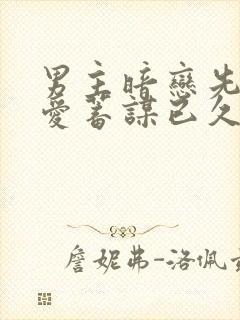 男主暗戀先
愛蓄謀已久
詹妮弗-洛佩茲